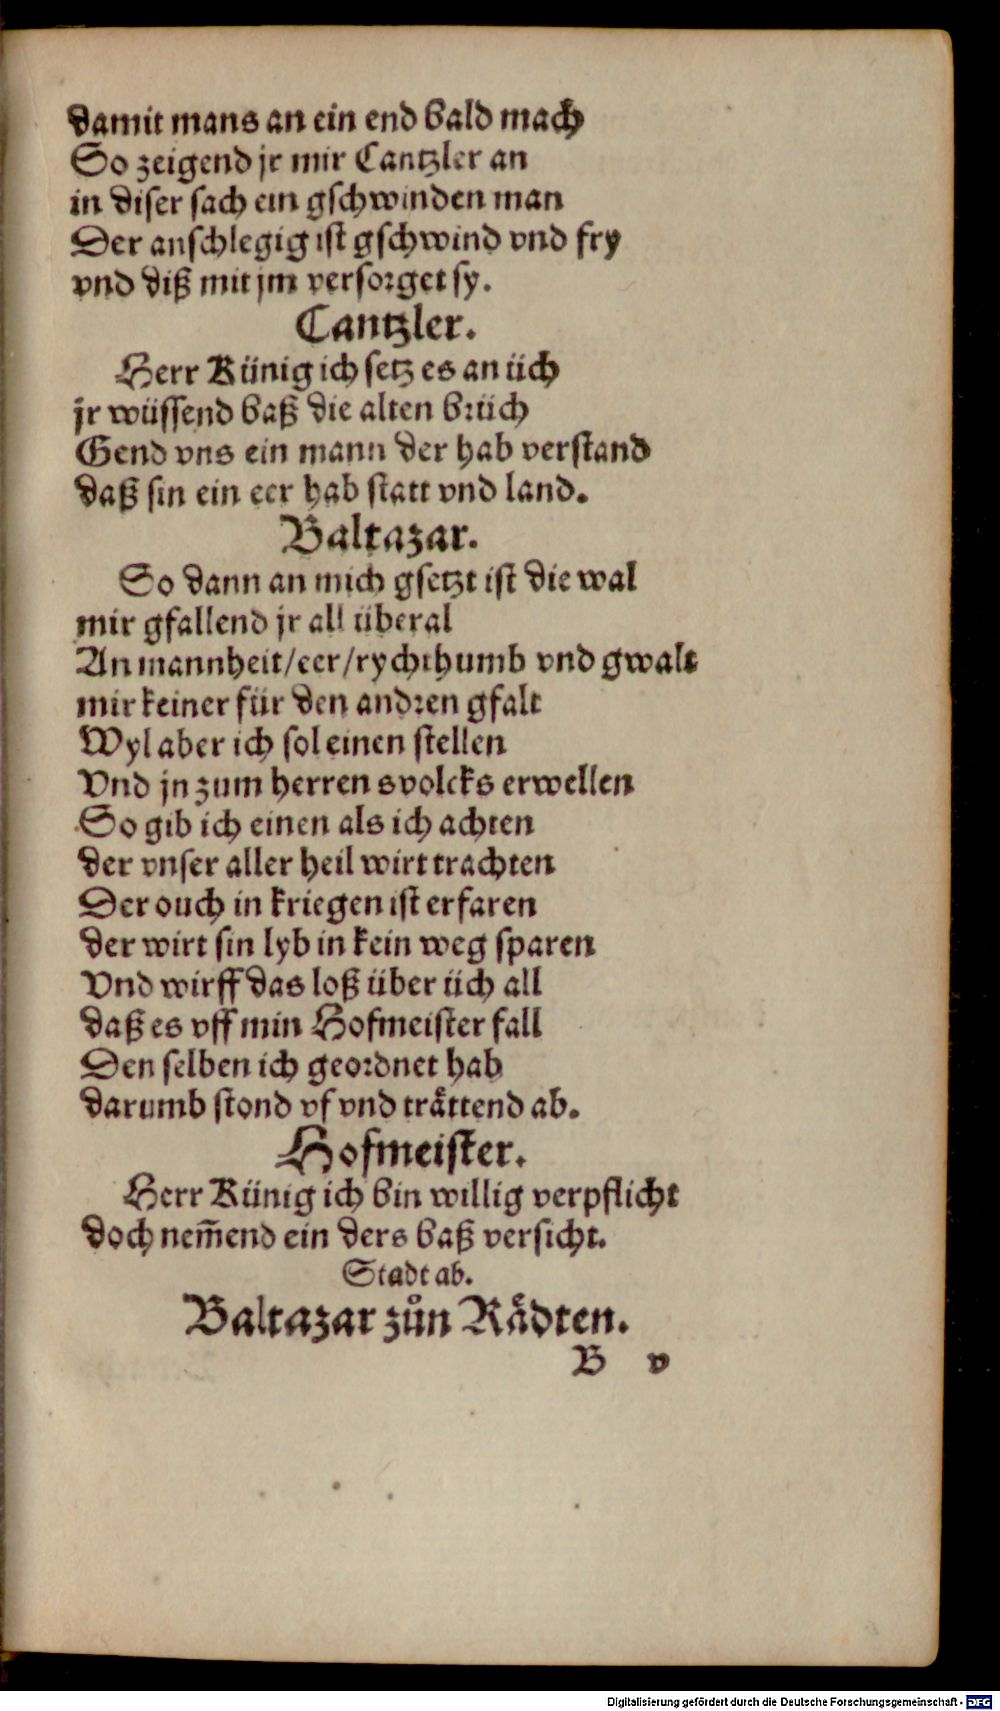 damit mans an ein end bald mach
So zeigend jr mir Cantzler an
in diser sach ein gschwinden man
Der anschlegig ist gschwind vnd fry
vnd diß mit jm versorget sy.
Cantzler.
Herr Künig ich setz es an üch
jr wüssend baß die alten brüch
Gend vns ein mann der hab verstand
daß sin ein eer hab statt vnd land.
Baltazar.
So dann an mich gsetzt ist die wal
mir gfallend jr all überal
An mannheit/eer/rychthumb vnd gwalt
mir keiner für den andren gfalt
Wyl aber ich sol einen stellen
Vnd jn zum herren svolcks erwellen
So gib ich einen als ich achten
der vnser aller heil wirt trachten
Der ouch in kriegen ist erfaren
der wirt sin lyb in kein weg sparen
Vnd wirff das loß über üch all
daß es vff min Hofmeister fall
Den selben ich geordnet hab
darumb stond vf vnd tråttend ab.
Hofmeister.
Herr Künig ich bin willig verpflicht
doch nem̄end ein ders baß versicht.
Stadt ab.
Baltazar zůn Rådten.
B v
Digitalisierung gefördert durch die Deutsche Forschungsgemeinschaft - DFG